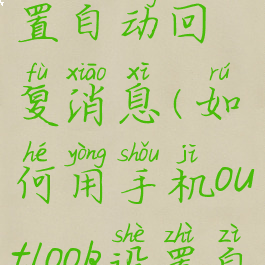 置自动回
fù xiāo xī rú
复消息(如
hé yòng shǒu jī
何用手机ou
shè zhì zì
tlook设置自